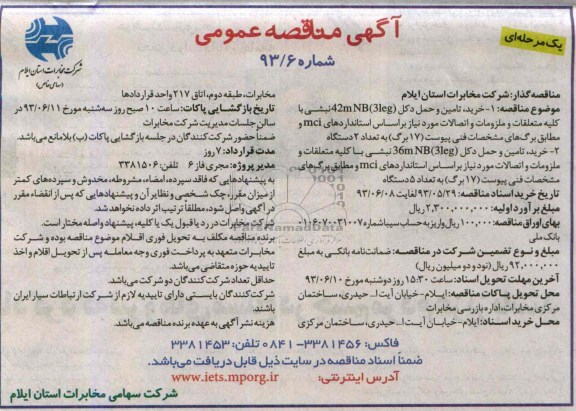 آگهی مناقصه عمومی
یک مرحله‌ای
شماره ۹۳/۶
شرکت مخابرات استان ایلام
(سهامی خاص)
مناقصه‌گذار: شرکت مخابرات استان ایلام
موضوع مناقصه: ۱- خرید، تامین و حمل دکل 42mNB(3leg) نبشی با
کلیه متعلقات و ملزومات و اتصالات مورد نیاز براساس استانداردهای mci و
مطابق برگ‌های مشخصات فنی پیوست (۱۷ برگ) به تعداد ۲ دستگاه
۲- خرید، تامین و حمل دکل 36mNB(3leg) نبشی با کلیه متعلقات و
ملزومات و اتصالات مورد نیاز براساس استانداردهای mci و مطابق برگ‌های
مشخصات فنی پیوست (۱۷ برگ) به تعداد ۵ دستگاه
تاریخ خرید اسناد مناقصه: ۹۳/۰۵/۲۹ لغایت ۹۳/۰۶/۰۸
مبلغ برآورد اولیه: ۲,۳۰۰,۰۰۰,۰۰۰ ریال
بهای اوراق مناقصه: ۱۰۰,۰۰۰ ریال واریز به حساب سیبا شماره ۰۱۰۶۰۷۰۰۳۱۰۰۷
بانک ملی
مبلغ و نوع تضمین شرکت در مناقصه: ضمانت‌نامه بانکی به مبلغ
۹۲,۰۰۰,۰۰۰ ریال (نود و دو میلیون ریال)
آخرین مهلت تحویل اسناد: ساعت ۱۵:۳۰ روز دوشنبه مورخ ۹۳/۰۶/۱۰
محل تحویل پاکات مناقصه: ایلام- خیابان آیت‌ا... حیدری، ساختمان
مرکزی مخابرات، اداره بازرسی مخابرات
محل خرید اسناد: ایلام- خیابان آیت‌ا... حیدری، ساختمان مرکزی
مخابرات، طبقه دوم، اتاق ۲۱۷ واحد قراردادها
تاریخ بازگشایی پاکات: ساعت ۱۰ صبح روز سه‌شنبه مورخ ۹۳/۰۶/۱۱ در
سالن جلسات مدیریت شرکت مخابرات
ضمنا حضور شرکت‌کنندگان در جلسه بازگشایی پاکات (ب) بلامانع می‌باشد.
مدت قرارداد: ۷ روز
مدیر پروژه: مجری فاز ۶ تلفن: ۳۳۸۱۵۰۶
به پیشنهادهایی که فاقد سپرده، امضاء، مشروطه، مخدوش و سپرده‌های کمتر
از میزان مقرر، چک شخصی و نظایر آن و پیشنهادهایی که پس از انقضاء مقرر
در آگهی واصل شود، مطلقاً ترتیب اثر داده نخواهد شد.
شرکت مخابرات در رد یا قبول یک یا کلیه، پیشنهاد واصله مختار است.
برنده مناقصه مکلف به تحویل فوری اقلام موضوع مناقصه بوده و شرکت
مخابرات متعهد به پرداخت فوری وجه معامله پس از تحویل اقلام و اخذ
تاییدیه حوزه متقاضی می‌باشد.
حداقل تعداد شرکت‌کنندگان دو شرکت می‌باشد.
شرکت‌کنندگان بایستی دارای تاییدیه لازم از شرکت ارتباطات سیار ایران
باشند.
هزینه نشر آگهی به عهده برنده مناقصه می‌باشد.
فاکس: ۳۳۸۱۴۵۶-۰۸۴۱ تلفن: ۳۳۸۱۴۵۳
ضمناً اسناد مناقصه در سایت ذیل قابل دریافت می‌باشد.
آدرس اینترنتی: www.iets.mporg.ir
شرکت سهامی مخابرات استان ایلام